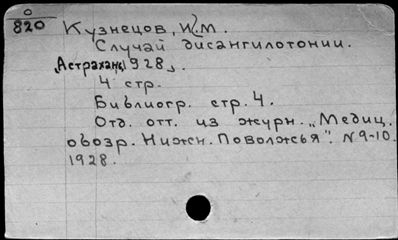 0
820
Кузнецов, И. М.
Случай дисангилотонии.
"Астрахань, 1928".
4 стр.
Библиогр. стр. 4.
Отд. отт. из журн. „Медиц.
обозр. Нижн. Поволжья". N 9-10.
1928.